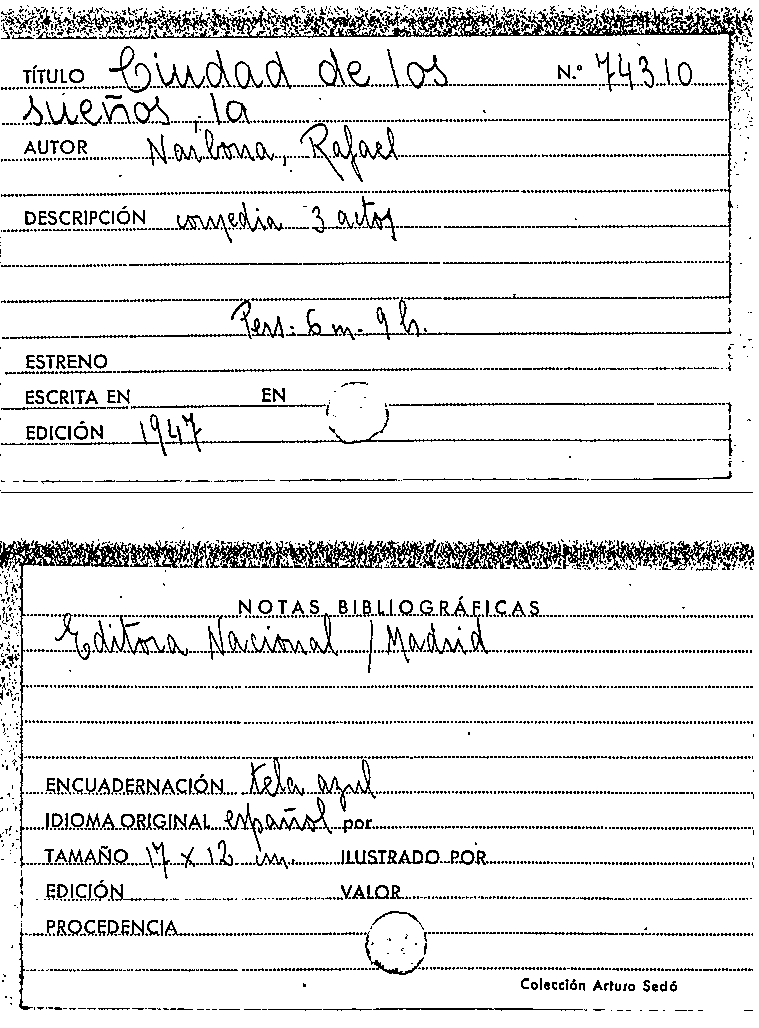 TÍTULO Ciudad de los N.º 74310
sueños, la
AUTOR Narbona, Rafael
DESCRIPCIÓN comedia 3 actos
Pers. 6 m. 9 h.
ESTRENO
ESCRITA EN EN
EDICIÓN 1947
NOTAS BIBLIOGRÁFICAS
Editora Nacional / Madrid
ENCUADERNACIÓN tela azul
IDIOMA ORIGINAL español por
TAMAÑO 17 x 12 cm. ILUSTRADO POR
EDICIÓN VALOR
PROCEDENCIA
Colección Arturo Sedó